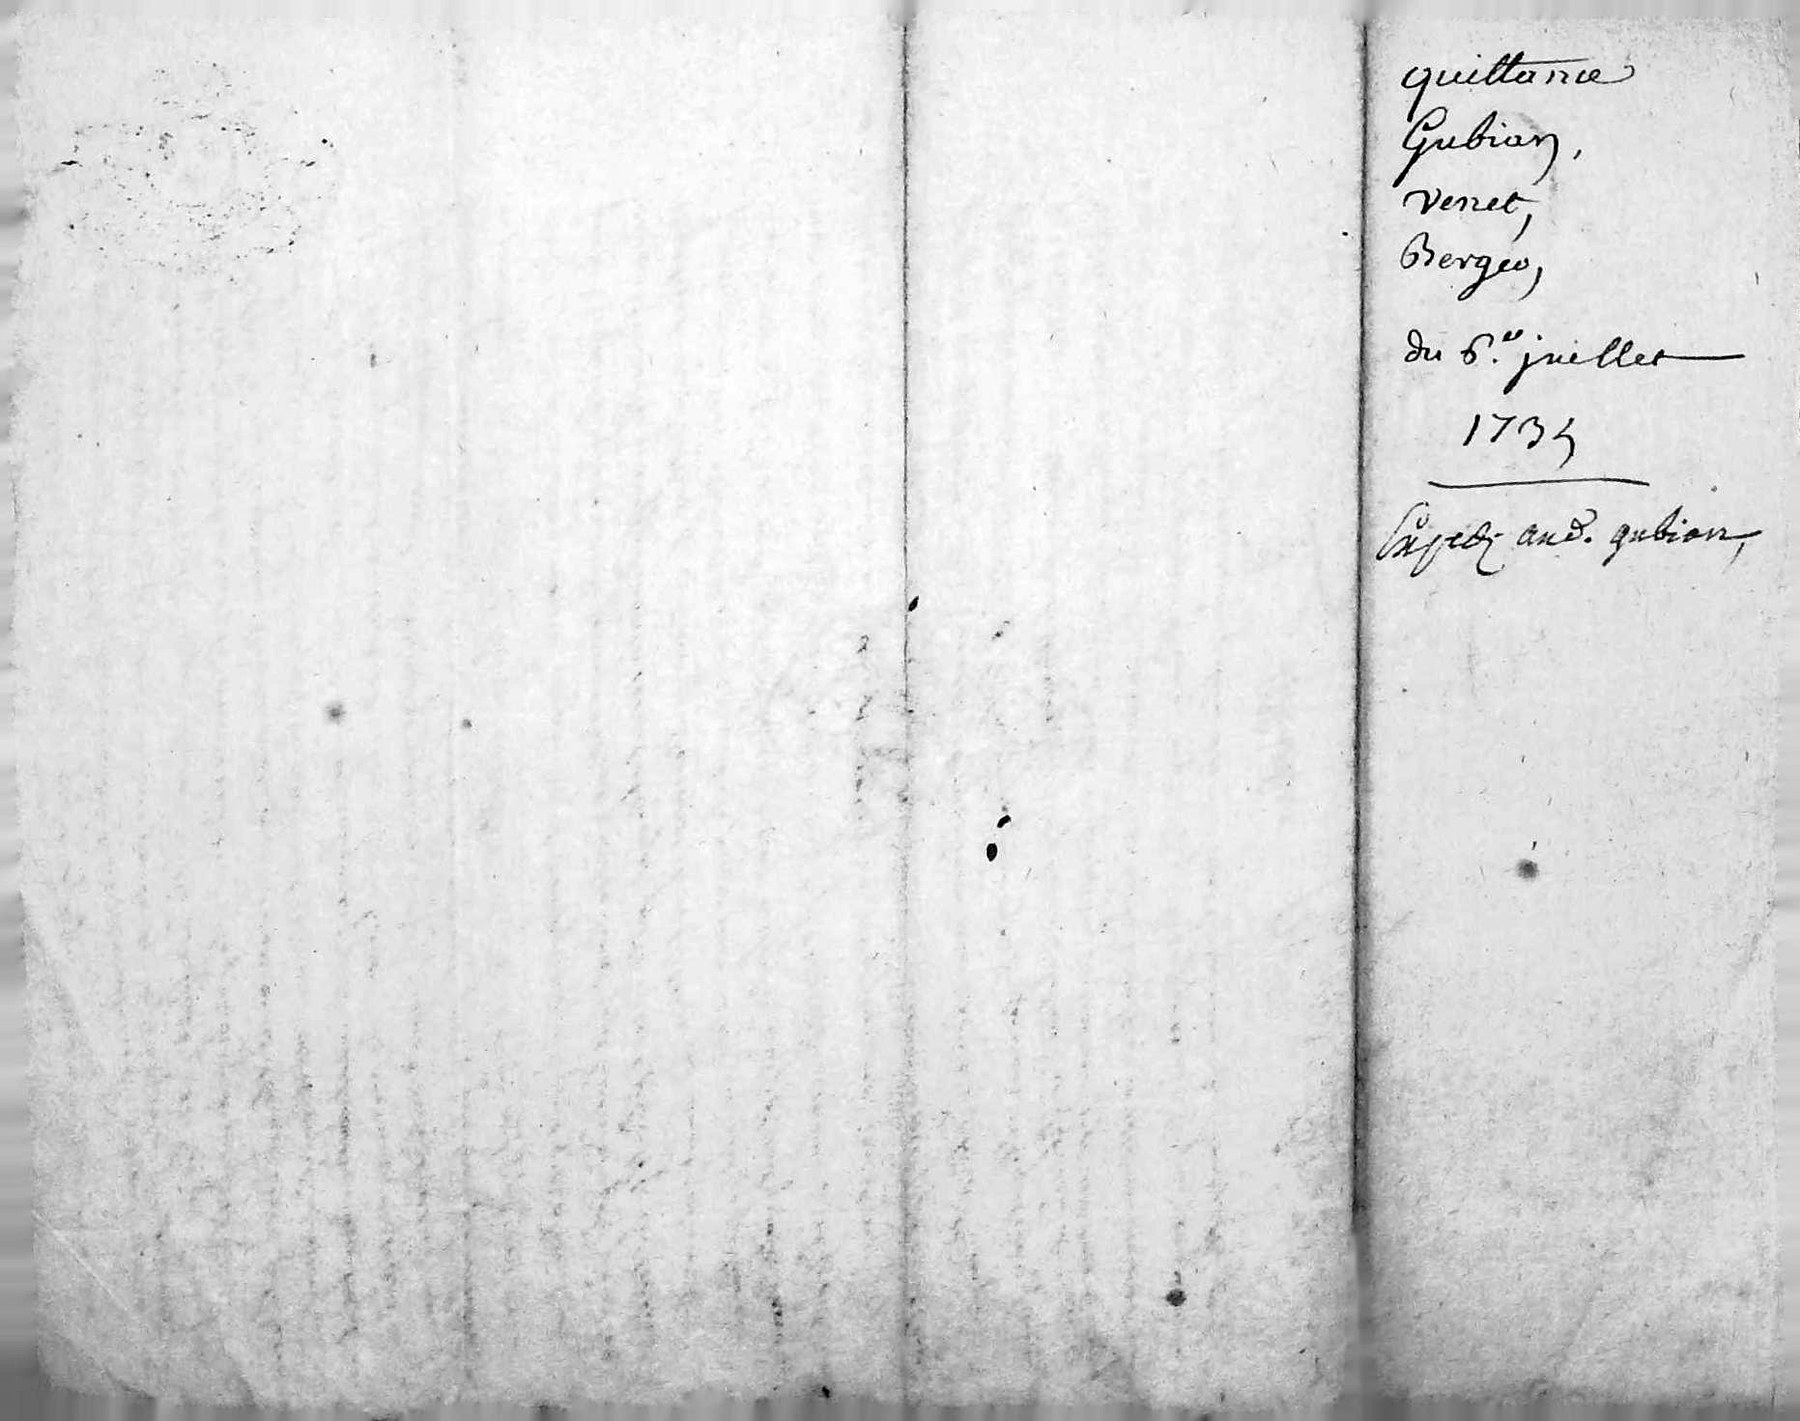 quittance
Gubian,
venet,
Berger,
du 6.e juillet
1735
Expedi aud. gubian,